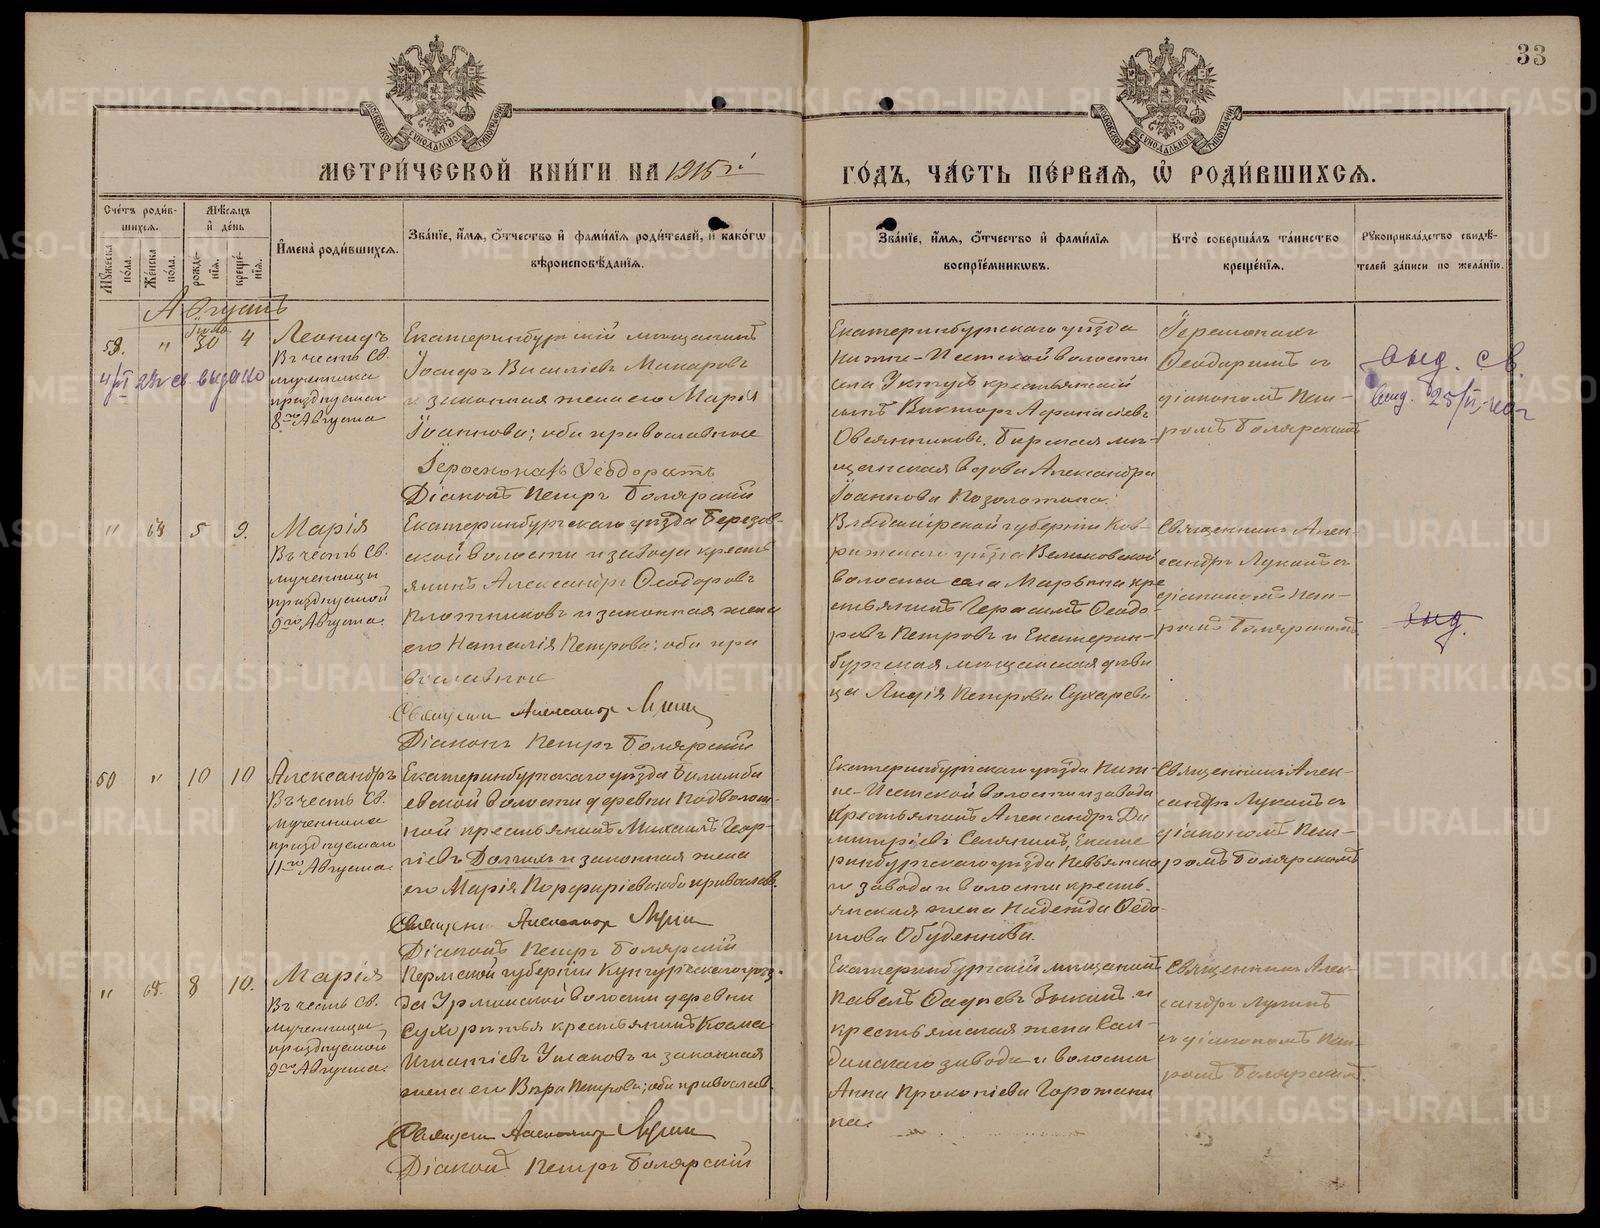 33
МОСКОВСКОЙ СѴНОДАЛЬНОЙ ТИПОГРАФІИ
МОСКОВСКОЙ СѴНОДАЛЬНОЙ ТИПОГРАФІИ
МЕТРИ́ЧЕСКОЙ КНИ́ГИ НА 1915 г.
ГО́ДЪ, ЧА́СТЬ ПЕ́РВАѦ, Ѡ҆ РОДИ́ВШИХСѦ.
Сче́тъ роди́вшихсѧ.
Мꙋ́жеска по́ла.
Же́нска по́ла.
Мѣ́сѧцъ и҆ де́нь
рожде́нїѧ.
креще́нїѧ.
И҆мена̀ роди́вшихсѧ.
Зва́нїе, и҆́мѧ, ѻ҆́тчество и҆ фами́лїѧ роди́телей, и҆ како́гѡ
вѣроисповѣ́данїѧ.
Зва́нїе, и҆́мѧ, ѻ҆́тчество и҆ фами́лїѧ
воспрїе́мникѡвъ.
Кто̀ соверша́лъ та́инство
креще́нїѧ.
Рꙋкоприкла́дство свидѣ́телей за́писи по жела́нїю.
Августъ
59. " Іюля 30 4
Леонидъ
Въ честь Св.
мученика
празднуемаго
8го Августа
Екатеринбургскій мѣщанинъ
Іосифъ Василіевъ Макаровъ
и законная жена его Марія
Іоаннова; оба православные
Іеромонахъ Ѳеодоритъ
Діаконъ Петръ Болярскій
Екатеринбургскаго уѣзда
Нижне-Исетской волости
села Уктусъ крестьянскій
сынъ Викторъ Афанасіевъ
Овсянниковъ, Бирская мѣщанская вдова Александра
Іоаннова Позолотина.
Іеромонахъ
Ѳеодоритъ съ
діакономъ Петромъ Болярскимъ
выд. св.
выд.
" 5 9.
Марія
Въ честь Св.
мученицы
празднуемой
9го Августа.
Екатеринбургскаго уѣзда Березовской волости и завода крестьянинъ Александръ Ѳеодоровъ
Плотниковъ и законная жена
его Наталія Петрова; оба православные
Священникъ Александръ Лукинъ
Діаконъ Петръ Болярскій
Владимірской губерніи Ковровскаго уѣзда Великовской
волости села Марьина крестьянинъ Герасимъ Ѳеодоровъ Петровъ и Екатеринбургская мѣщанская дѣвица Лидія Петрова Сухарева
Священникъ Александръ Лукинъ съ
діакономъ Петромъ Болярскимъ
выд.
60 " 10 10
Александръ
Въ честь Св.
мученика
празднуемаго
11го Августа.
Екатеринбургскаго уѣзда Билимбаевской волости деревни Подволошной крестьянинъ Михаилъ Георгіевъ Долгихъ и законная жена
его Марія Порфиріева; оба православ.
Священникъ Александръ Лукинъ
Діаконъ Петръ Болярскій
Екатеринбургскаго уѣзда Нижне-Исетской волости и завода
крестьянинъ Александръ Димитріевъ Селянинъ, Екатеринбургскаго уѣзда Невьянскаго завода и волости крестьянская жена Надежда Ѳедотова Обуденнова.
Священникъ Александръ Лукинъ съ
діакономъ Петромъ Болярскимъ
" 8 10.
Марія
Въ честь Св.
мученицы
празднуемой
9го Августа.
Пермской губерніи Кунгурскаго уѣзда Урминской волости деревни
крестьянинъ Косма
Игнатіевъ Ушаковъ и законная
жена его Вѣра Петрова; оба православ.
Священникъ Александръ Лукинъ
Діаконъ Петръ Болярскій
Екатеринбургскій мѣщанинъ
Павелъ Зыкинъ и
крестьянская жена
завода и волости
Анна Прокопіева Горожанина.
Священникъ Александръ Лукинъ
съ діакономъ Петромъ Болярскимъ.
METRIKI.GASO-URAL.RU